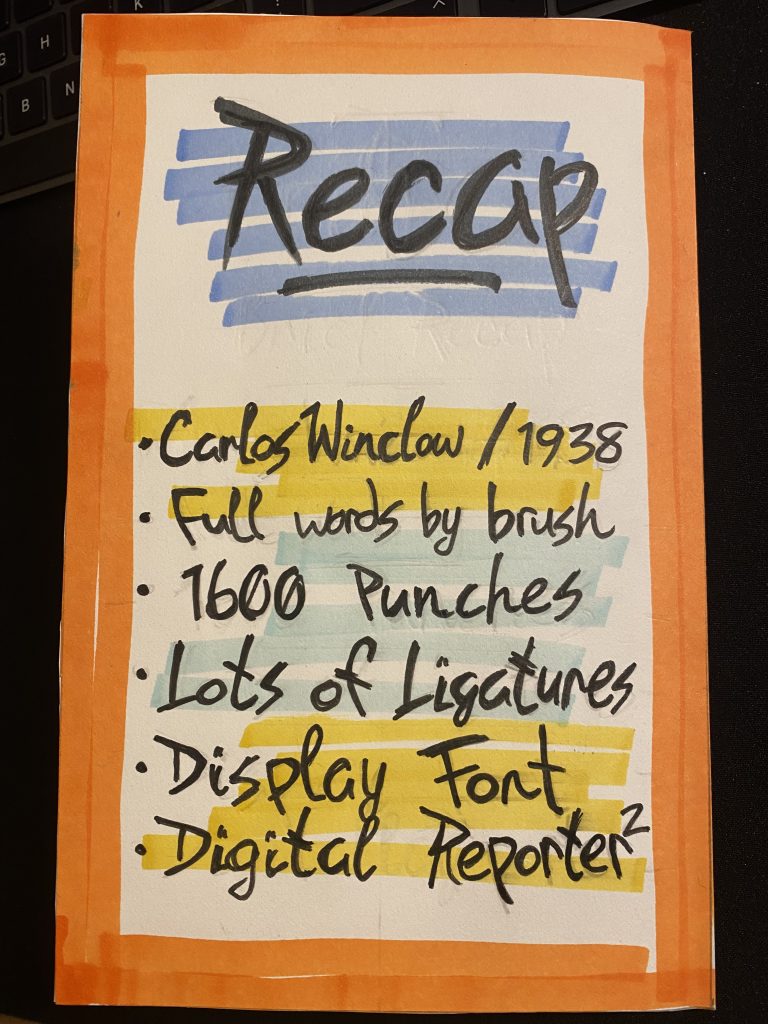 Recap
• Carlos Winclow / 1938
• Full words by brush
• 1600 Punches
• Lots of Ligatures
• Display Font
• Digital Reporter²
G
H
K
B
N